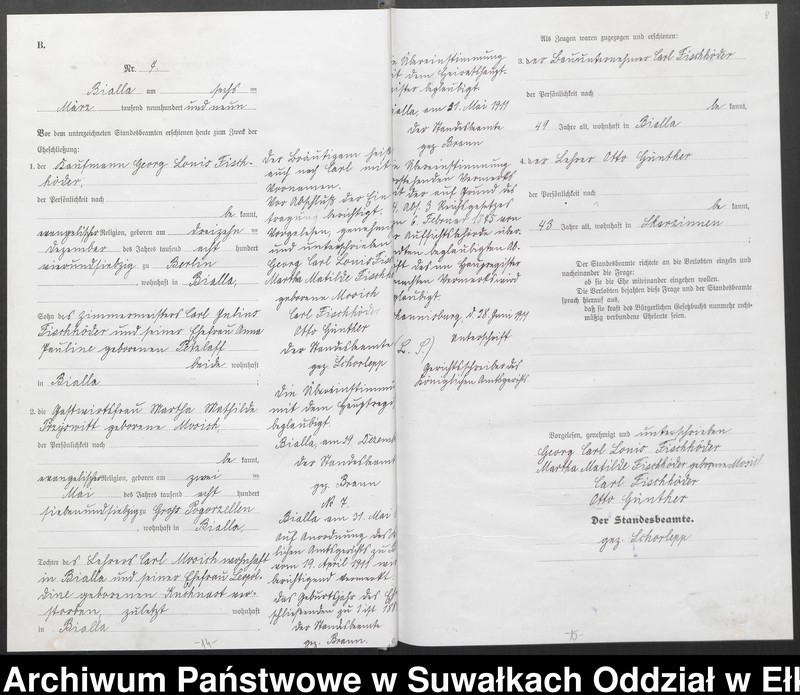 B.
Nr. 9.
Bialla am sechs
März tausend neunhundert und neun
Vor dem unterzeichneten Standesbeamten erschienen heute zum Zweck der
Eheschließung:
1. der Kaufmann Georg Louis Fisch-
höder,
der Persönlichkeit nach
be kannt,
evangelischer Religion, geboren am dreizehn
Dezember des Jahres tausend acht hundert
vierundsiebzig zu Berlin
, wohnhaft in Bialla,
Sohn des Zimmermeisters Carl Julius
Fischhöder und seiner Ehefrau Anna
Pauline geborenen
beide wohnhaft
in Bialla ;
2. die Gastwirtsfrau Martha Mathilde
geborene Morich,
der Persönlichkeit nach
be kannt,
evangelischer Religion, geboren am zwei
Mai des Jahres tausend acht hundert
siebenundsiebzig zu Groß Pogorzellen
, wohnhaft in Bialla,
Tochter des Lehrers Carl Morich wohnhaft
in Bialla und seiner Ehefrau Leopol-
dine geborenen ver-
storben, zuletzt wohnhaft
in Bialla
Der Bräutigam heißt
auch noch Carl mit
Vornamen.
Vor Abschluß der Ein
tragung berichtigt.
Vorgelesen, genehmigt
und unterschrieben
Georg Carl Louis Fisch
Martha Matilde Fischhö
geborene Morich
Carl Fischhöder
Otto Günther
Der Standesbeamte
gez. Schorlepp
Die Übereinstimmung
mit dem Hauptregi
beglaubigt.
Bialla, am 29. Dezemb
Der Standesbeamte
gez. Brann
№ 7.
Bialla am 31. Mai
Auf Anordnung des
lichen Amtsgerichts zu
vom 19. April 1911 wird
berichtigend vermerkt.
das Geburtsjahr des Eh
schließenden zu 1 ist 18
Der Standesbeamte
gez. Brann.
-14-
ie Übereinstimmung
it dem Heiratshaupt-
gister beglaubigt
ialla, am 31. Mai 1911
Der Standesbeamte
gez. Brann
ie Übereinstimmung
vorstehenden Vermerks
it der auf Grund des
Abs. 3 Reichsgesetzes
6. Februar 1875 von
r Aufsichtsbehörde über-
beglaubigten Ab-
ift des im Hauptregister
gemachten Vermerks wird
glaubigt.
Johannisburg, d. 28. Juni 1911
(L. S.) Unterschrift
Gerichtsschreiber des
Königlichen Amtsgerichts
8
Als Zeugen waren zugezogen und erschienen:
3. der Bauunternehmer Carl Fischhöder
der Persönlichkeit nach
be kannt,
49 Jahre alt, wohnhaft in Bialla
4. der Lehrer Otto Günther
der Persönlichkeit nach
be kannt,
43 Jahre alt, wohnhaft in Skarzinnen
Der Standesbeamte richtete an die Verlobten einzeln und
nacheinander die Frage:
ob sie die Ehe miteinander eingehen wollen.
Die Verlobten bejahten diese Frage und der Standesbeamte
sprach hierauf aus,
daß sie kraft des Bürgerlichen Gesetzbuchs nunmehr recht-
mäßig verbundene Eheleute seien.
Vorgelesen, genehmigt und unterschrieben
Georg Carl Louis Fischhöder
Martha Matilde Fischhöder geborene Morich
Carl Fischhöder
Otto Günther
Der Standesbeamte.
gez. Schorlepp
-15-
Archiwum Państwowe w Suwałkach Oddział w Ełk